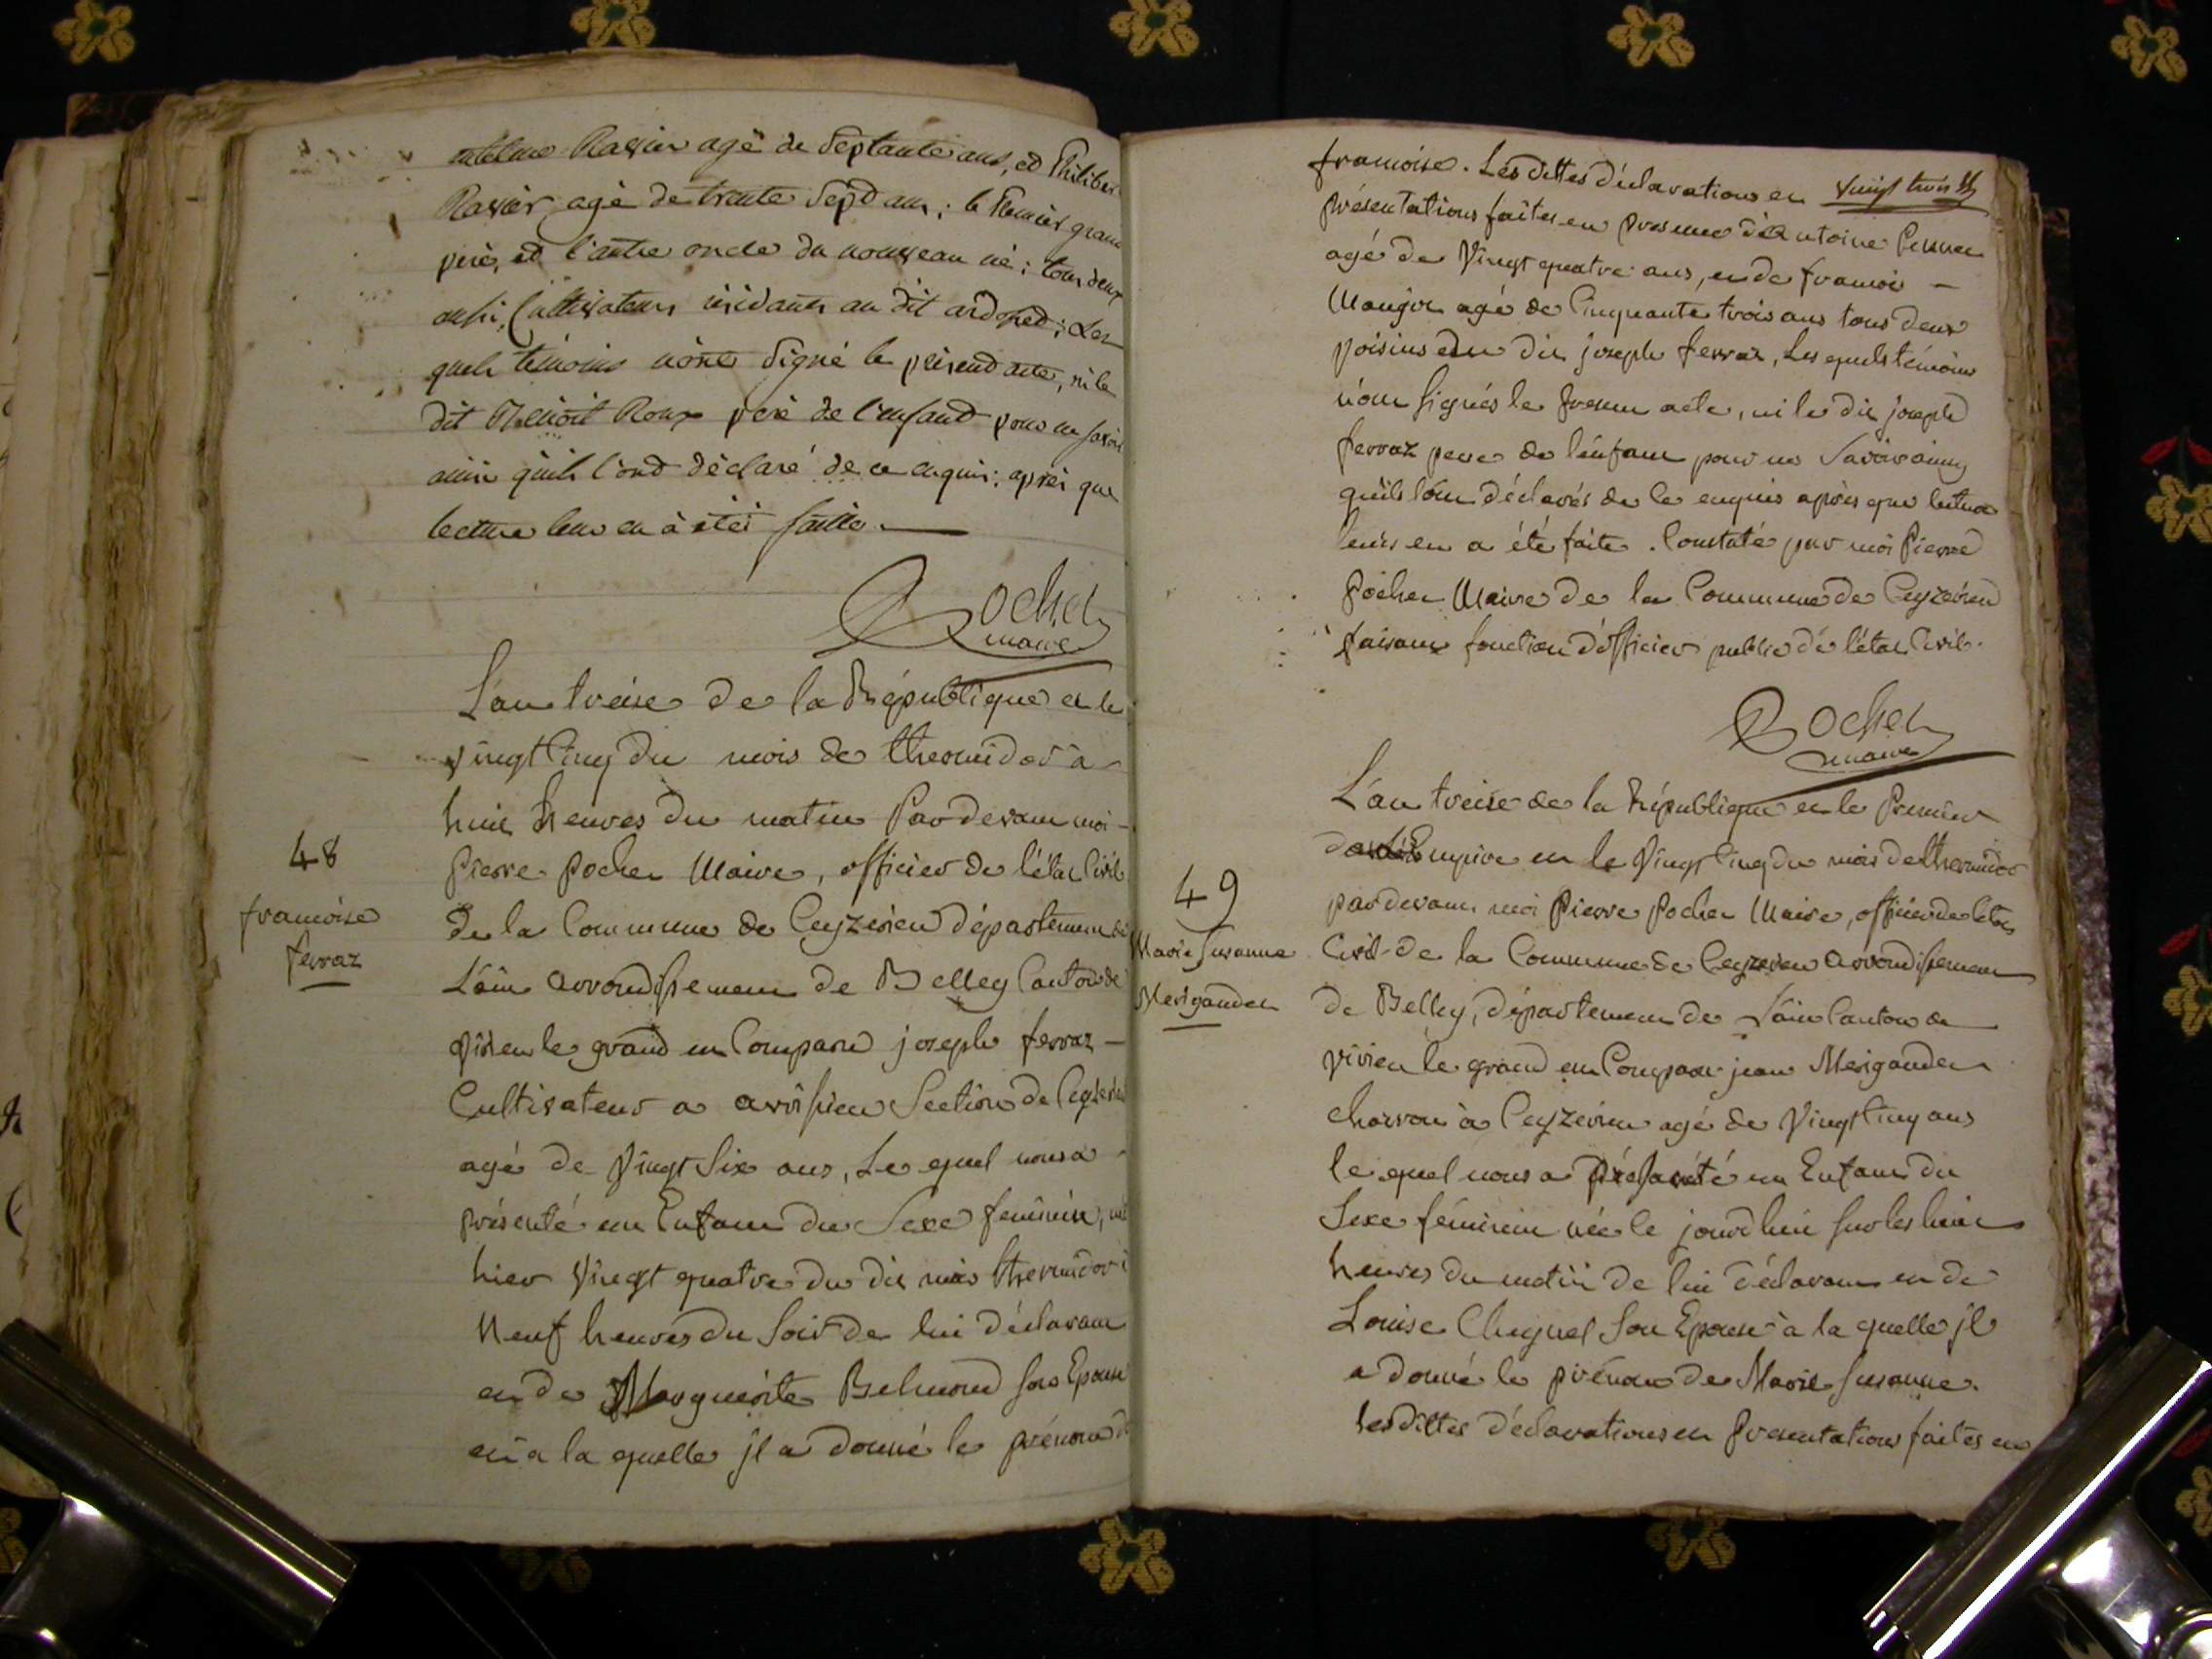 Ravier agé de Septante ans, et Philibert
Ravier agé de trente Sept ans; le Premier grand
pere, et l'autre oncle du nouveau né; tous deux
aussi Cultivateurs residants au dit ardosset; Les
quels témoins n'ont Signé le présend acte, ni le
dit Benoit Roux pere de l'enfand pour ne savoir
ainsi quils l'ond déclaré de ce enquis; après que
lecture leur en à étéi faitte.
Pochet
maire
48
francoise
ferraz
L'an treise de la République et le
vingt Cinq du mois de thermidor à
huit heures du matin Pardevant moi
Pierre Pochet Maire, officier de l'état Civil
de la Commune de Ceyzerieu département de
L'ain arrondissement de Belley Canton de
virieu le grand est Comparu joseph ferraz
Cultivateur a avrissieu Section de Ceyzerieu
agé de Vingt Six ans, Le quel nous a
présenté un Enfant du Sexe feminin, né
hier Vingt quatre du dit mois thermidor à
Neuf heures du Soir de lui déclarant
et de Marguerite Belmond son Epouse
et a la quelle jl a donné le prénom de
francoise. Les dittes déclarations et
vingt trois
présentations faites en presence d'Antoine Peysson
agé de Vingt quatre ans, et de francois
Maujot agé de Cinquante trois ans tous deux
Voisins du dit joseph ferraz, Les quels témoins
n'ont Signés le present acte, ni le dit joseph
ferraz pere de l'enfant pour ne Savoir ainsy
quils l'ont déclarés de ce enquis après que lecture
leurs en a été faite. Constaté par moi Pierre
Pochet Maire de la Commune de Ceyzerieu
faisant fonction d'officier public de l'état Civil.
Pochet
maire
49
Marie Susanne
Merigandet
L'an treise de la République et le Premier
de L'Empire et le Vingt Cinq du mois de thermidor
pardevant moi Pierre Pochet Maire, officier de l'état
Civil de la Commune de Ceyzerieu arrondissement
de Belley, département de L'ain Canton de
virieu le grand est Comparu jean Merigandet
charron à Ceyzerieu agé de Vingt Cinq ans
le quel nous a présenté un Enfant du
Sexe féminin née le jourdhui sur les huit
heures du matin de lui déclarant et de
Louise Chegnel Son Epouse à la quelle jl
a donné le prénom de Marie Susanne.
les dittes déclarations et presentations faites en